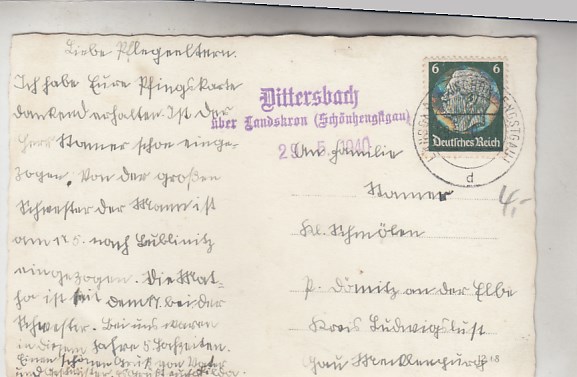 Liebe Pflegeeltern.
Ich habe Eure Pfingskarte
dankend erhalten. Ist der
Herr Stamer schon einge-
zogen. Von der großen
Schwester der Mann ist
am 17.5. nach Lublinitz
eingezogen. Die Mat-
ha ist seit dem 17. bei der
Schwester. Bei uns waren
in diesem Jahre 5 Hochzeiten.
Einen schönen Gruß von Vater
und Geschwister.
Dittersbach
über Landskron (Schönhengstgau)
5. 1940
6 6
Deutsches Reich
d
4,-
An Familie
Stamer
Kl. Schmölen
P. Dömitz an der Elbe
Kreis Ludwigslust
Gau Mecklenburg